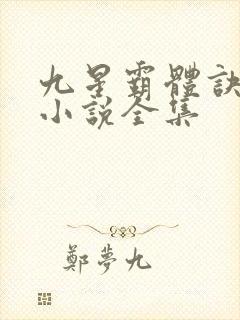 九星霸體訣
小說全集
鄭夢九